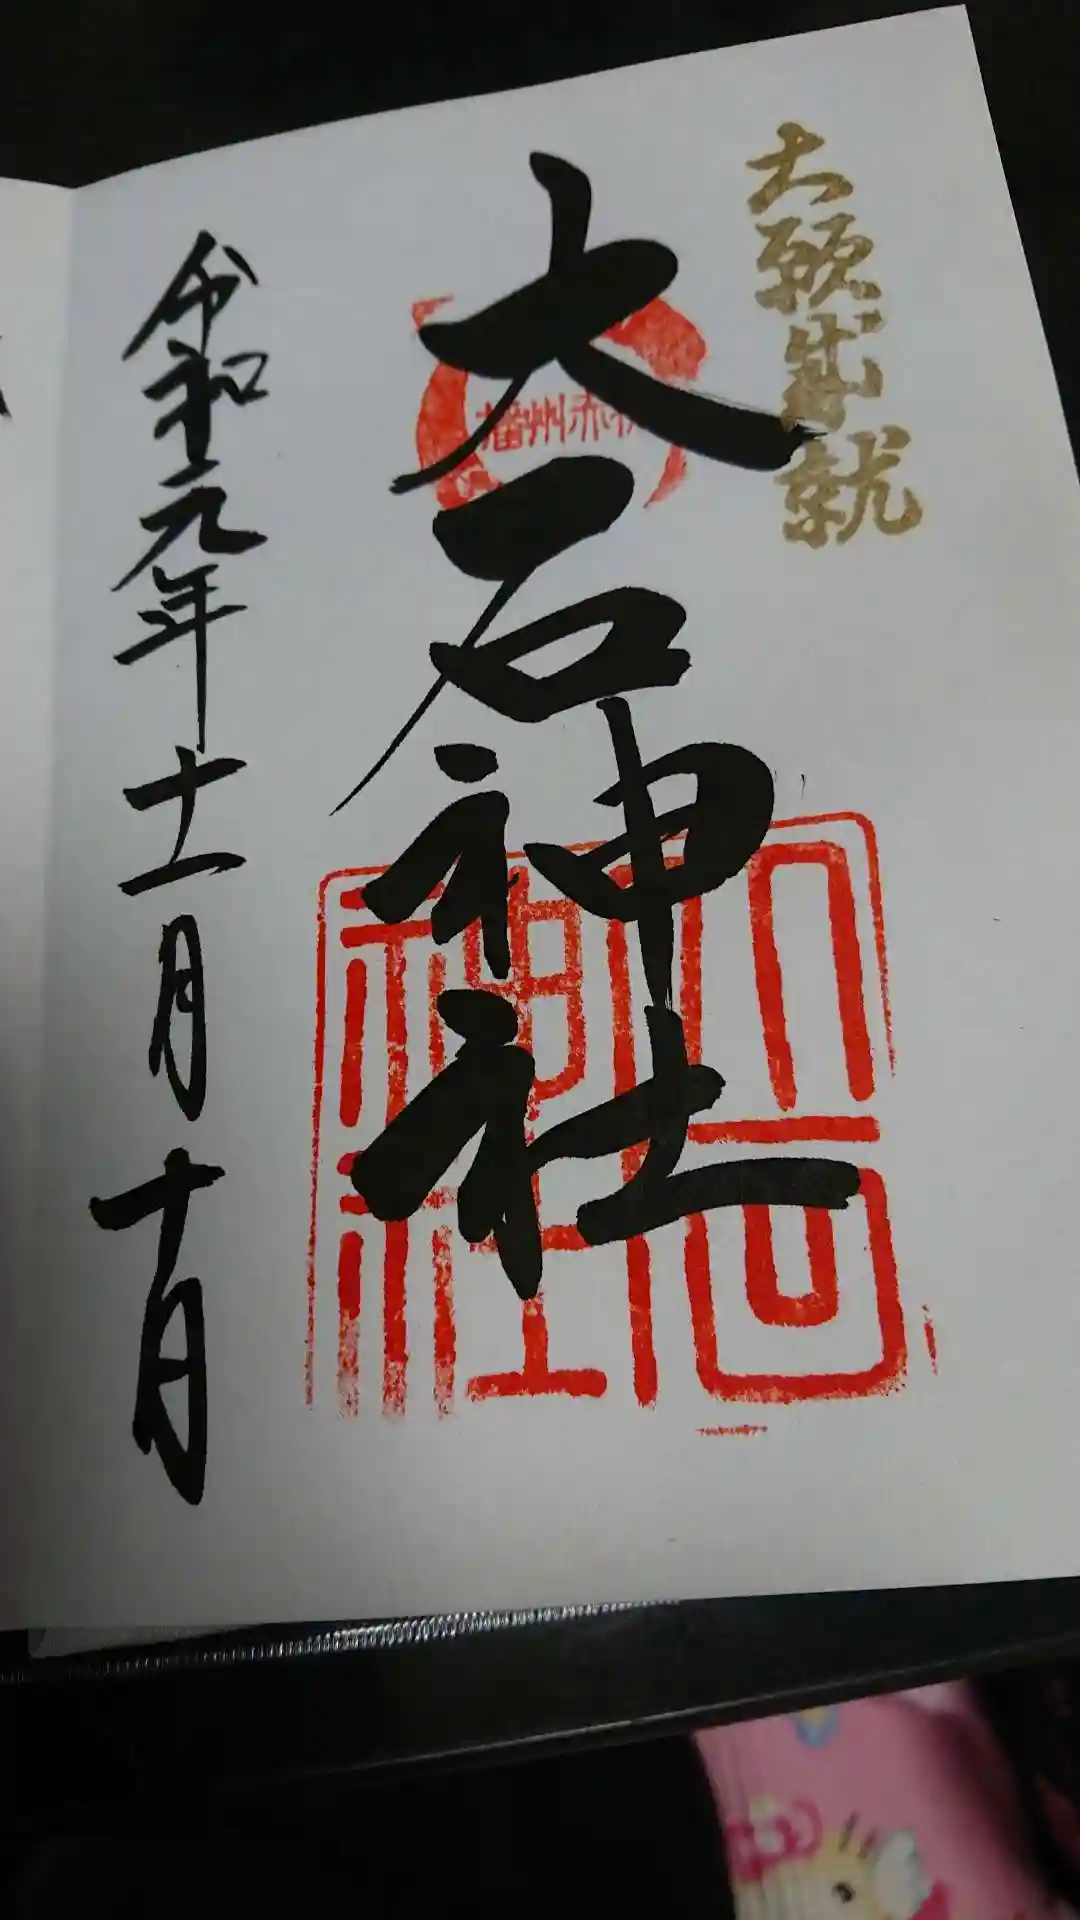 大願成就
播州赤穂
大石神社
大石神社
令和元年十一月十日